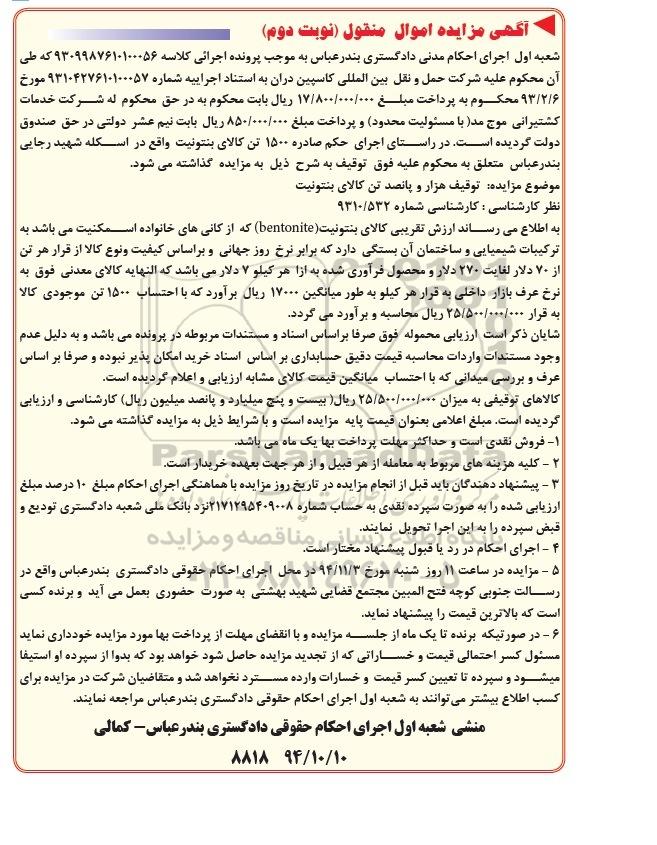 آگهی مزایده اموال منقول (نوبت دوم)
شعبه اول اجرای احکام مدنی دادگستری بندرعباس به موجب پرونده اجرائی کلاسه ۹۳۰۹۹۸۷۶۱۰۱۰۰۰۵۶ که طی
آن محکوم علیه شرکت حمل و نقل بین المللی کاسپین دران به استناد اجراییه شماره ۹۳۱۰۴۲۷۶۱۰۱۰۰۰۵۷ مورخ
۹۳/۲/۶ محکوم به پرداخت مبلغ ۱۷/۸۰۰/۰۰۰/۰۰۰ ریال بابت محکوم به در حق محکوم له شرکت خدمات
کشتیرانی موج مد( با مسئولیت محدود) و پرداخت مبلغ ۸۵۰/۰۰۰/۰۰۰ ریال بابت نیم عشر دولتی در حق صندوق
دولت گردیده است. در راستای اجرای حکم صادره ۱۵۰۰ تن کالای بنتونیت واقع در اسکله شهید رجایی
بندرعباس متعلق به محکوم علیه فوق توقیف به شرح ذیل به مزایده گذاشته می شود.
موضوع مزایده: توقیف هزار و پانصد تن کالای بنتونیت
نظر کارشناسی : کارشناسی شماره ۹۳۱۰/۵۳۲
به اطلاع می رساند ارزش تقریبی کالای بنتونیت(bentonite) که از کانی های خانواده اسمکتیت می باشد به
ترکیبات شیمیایی و ساختمان آن بستگی دارد که برابر نرخ روز جهانی و براساس کیفیت ونوع کالا از قرار هر تن
از ۷۰ دلار لغایت ۲۷۰ دلار و محصول فرآوری شده به ازا هر کیلو ۷ دلار می باشد که النهایه کالای معدنی فوق به
نرخ عرف بازار داخلی به قرار هر کیلو به طور میانگین ۱۷۰۰۰ ریال برآورد که با احتساب ۱۵۰۰ تن موجودی کالا
به قرار ۲۵/۵۰۰/۰۰۰/۰۰۰ ریال محاسبه و برآورد می گردد.
شایان ذکر است ارزیابی محموله فوق صرفا براساس اسناد و مستندات مربوطه در پرونده می باشد و به دلیل عدم
وجود مستندات واردات محاسبه قیمت دقیق حسابداری بر اساس اسناد خرید امکان پذیر نبوده و صرفا بر اساس
عرف و بررسی میدانی که با احتساب میانگین قیمت کالای مشابه ارزیابی و اعلام گردیده است.
کالاهای توقیفی به میزان ۲۵/۵۰۰/۰۰۰/۰۰۰ ریال( بیست و پنج میلیارد و پانصد میلیون ریال) کارشناسی و ارزیابی
گردیده است. مبلغ اعلامی بعنوان قیمت پایه مزایده است و با شرایط ذیل به مزایده گذاشته می شود.
۱- فروش نقدی است و حداکثر مهلت پرداخت بها یک ماه می باشد.
۲ - کلیه هزینه های مربوط به معامله از هر قبیل و از هر جهت بعهده خریدار است.
۳ - پیشنهاد دهندگان باید قبل از انجام مزایده در تاریخ روز مزایده با هماهنگی اجرای احکام مبلغ ۱۰ درصد مبلغ
ارزیابی شده را به صورت سپرده نقدی به حساب شماره ۲۱۷۱۲۹۵۴۰۹۰۰۸نزد بانک ملی شعبه دادگستری تودیع و
قبض سپرده را به این اجرا تحویل نمایند.
۴ - اجرای احکام در رد یا قبول پیشنهاد مختار است.
۵ - مزایده در ساعت ۱۱ روز شنبه مورخ ۹۴/۱۱/۳ در محل اجرای احکام حقوقی دادگستری بندرعباس واقع در
رسالت جنوبی کوچه فتح المبین مجتمع قضایی شهید بهشتی به صورت حضوری بعمل می آید و برنده کسی
است که بالاترین قیمت را پیشنهاد نماید.
۶ - در صورتیکه برنده تا یک ماه از جلسه مزایده و با انقضای مهلت از پرداخت بها مورد مزایده خودداری نماید
مسئول کسر احتمالی قیمت و خساراتی که از تجدید مزایده حاصل شود خواهد بود که بدوا از سپرده او استیفا
میشود و سپرده تا تعیین کسر قیمت و خسارات وارده مسترد نخواهد شد و متقاضیان شرکت در مزایده برای
کسب اطلاع بیشتر می‌توانند به شعبه اول اجرای احکام حقوقی دادگستری بندرعباس مراجعه نمایند.
منشی شعبه اول اجرای احکام حقوقی دادگستری بندرعباس- کمالی
۹۴/۱۰/۱۰ ۸۸۱۸
ParsNamadData
پایگاه اطلاع رسانی مناقصه و مزایده